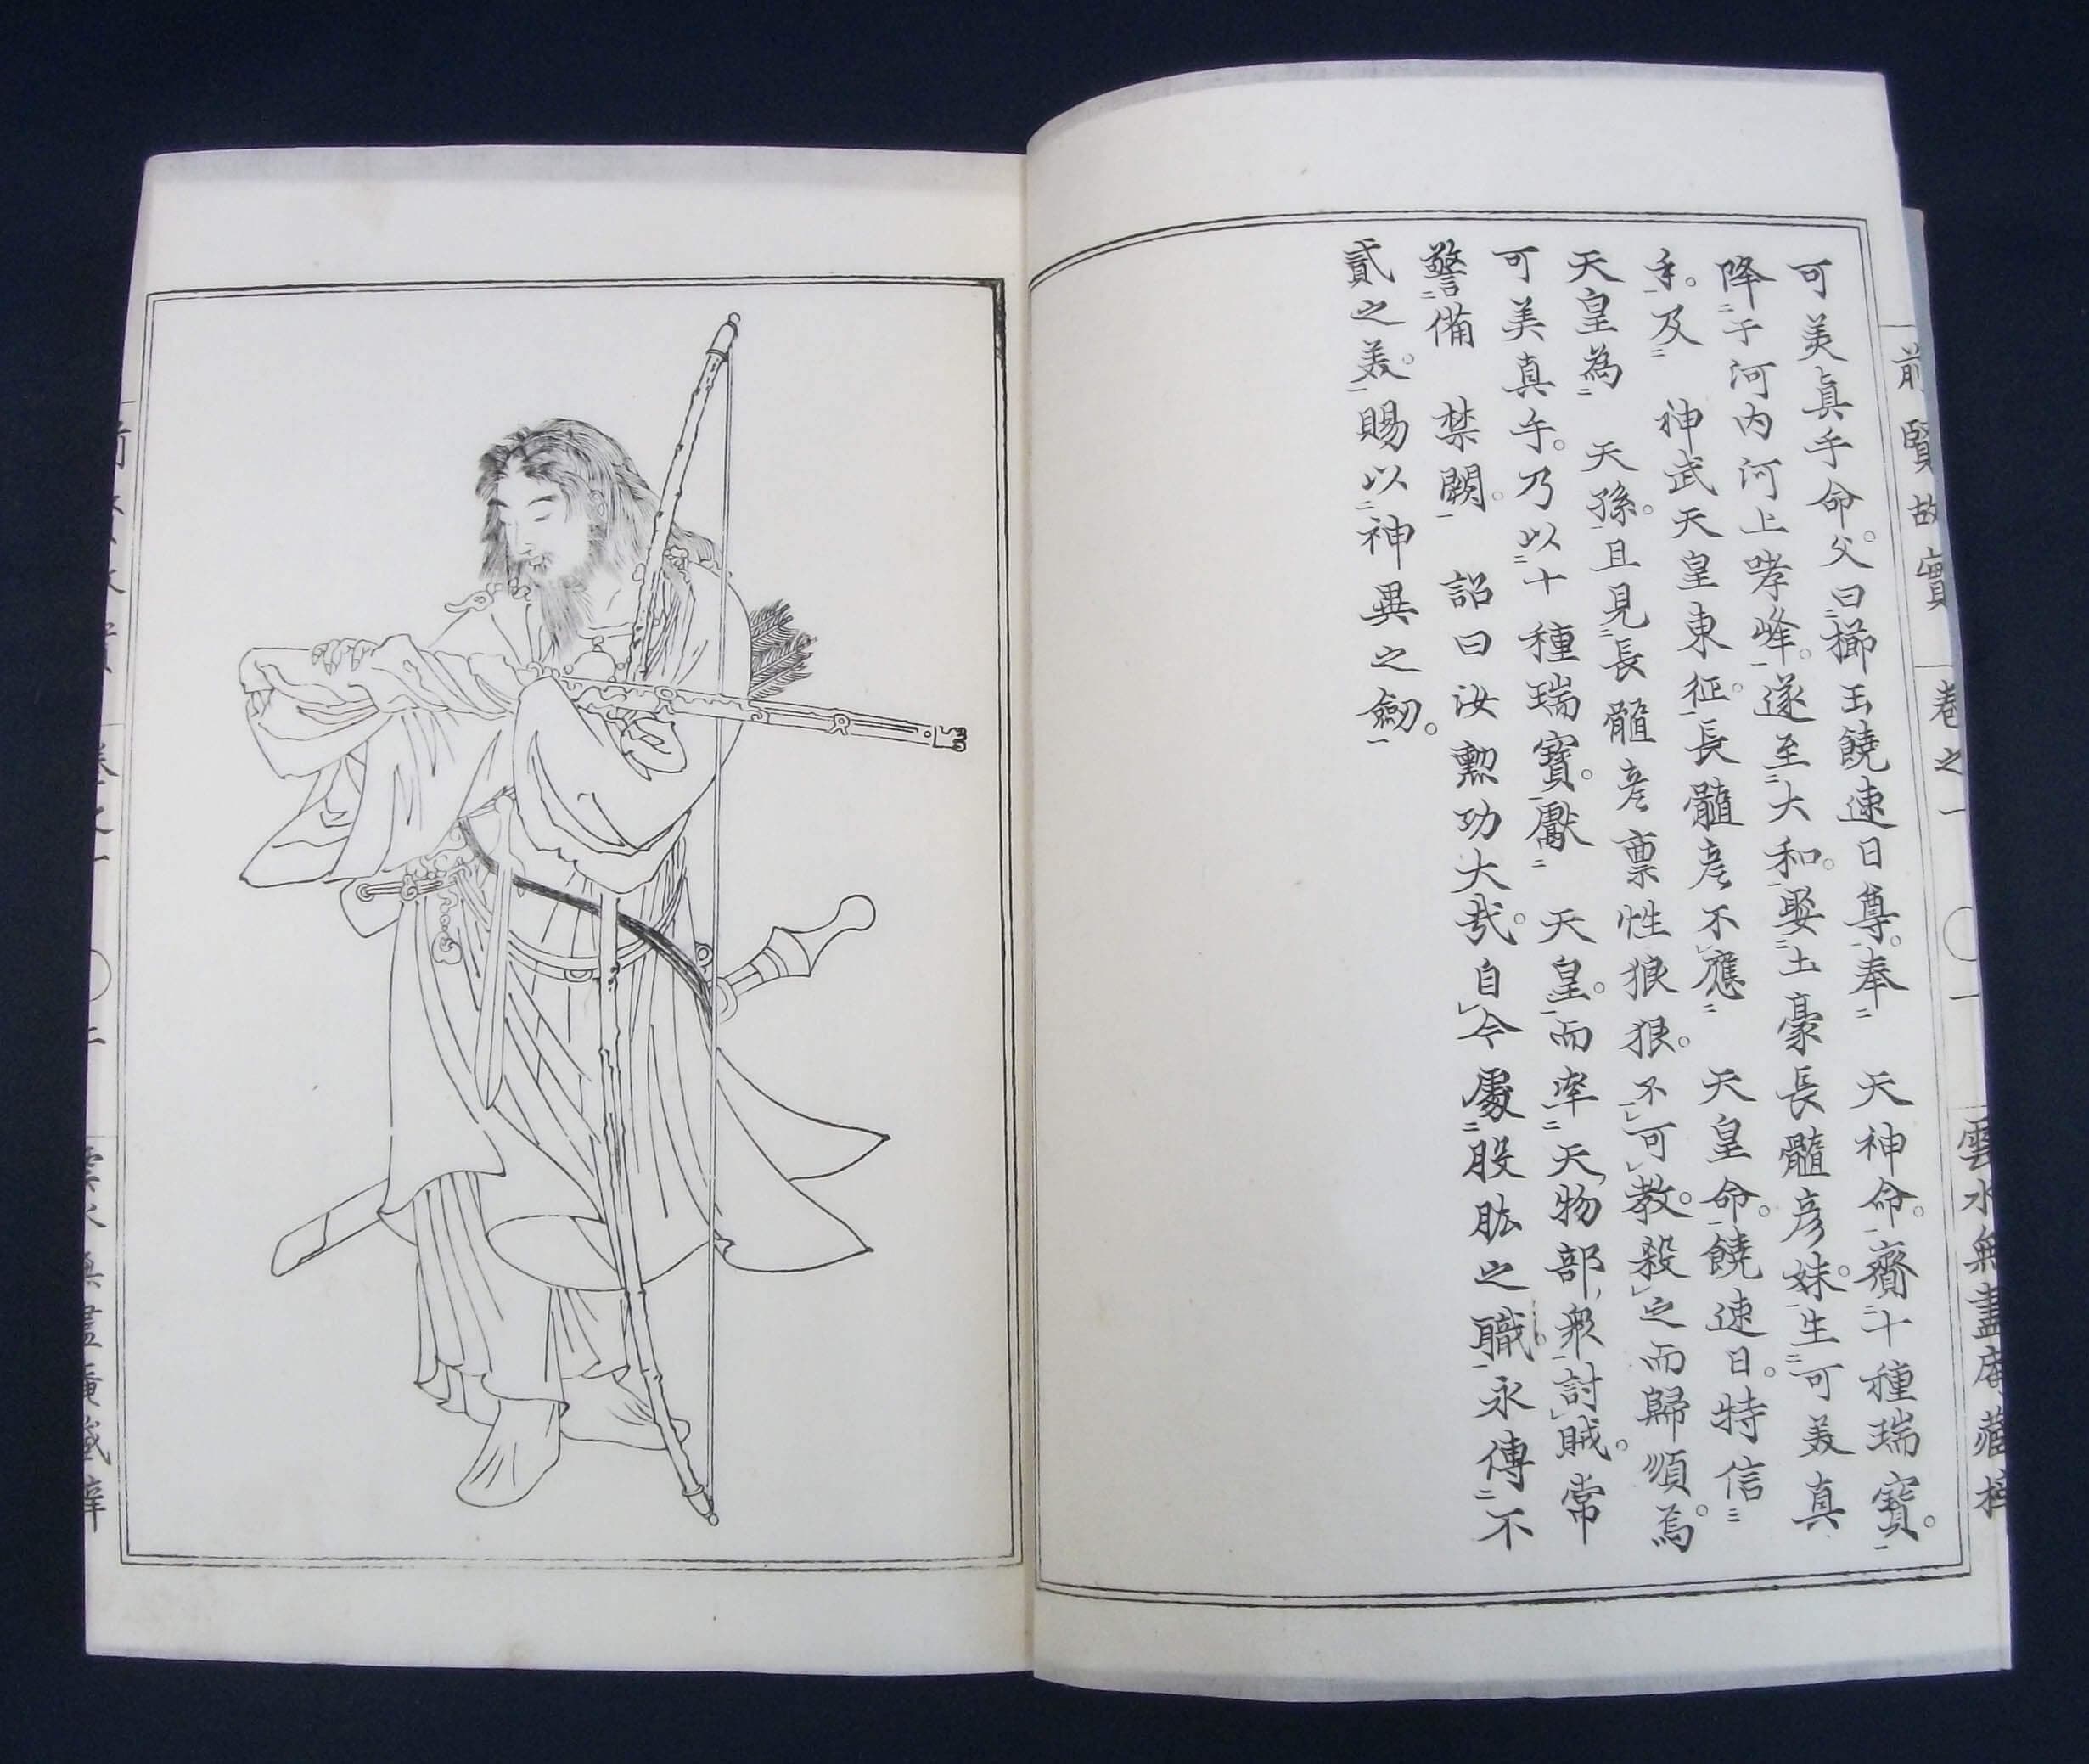 前賢故實 卷之一 〇一 雲水無盡庵藏梓
可美眞手命。父曰櫛玉饒速日尊。奉 天神命。齎十種瑞寶。
降于河內河上哮峰。遂至大和。娶土豪長髓彥妹。生可美真
手。及 神武天皇東征。長髓彥不應 天皇命。饒速日。特信
天皇為 天孫。且見長髓彥稟性狼狠。不可教。殺之而歸順焉。
可美真手。乃以十種瑞寶。獻 天皇。而率天物部衆討賊。常
警備 禁闕。 詔曰汝勲功大哉。自今處股肱之職。永傳不
貳之美。賜以神異之劒。
卷之一 〇二